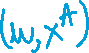 (w, x^A)